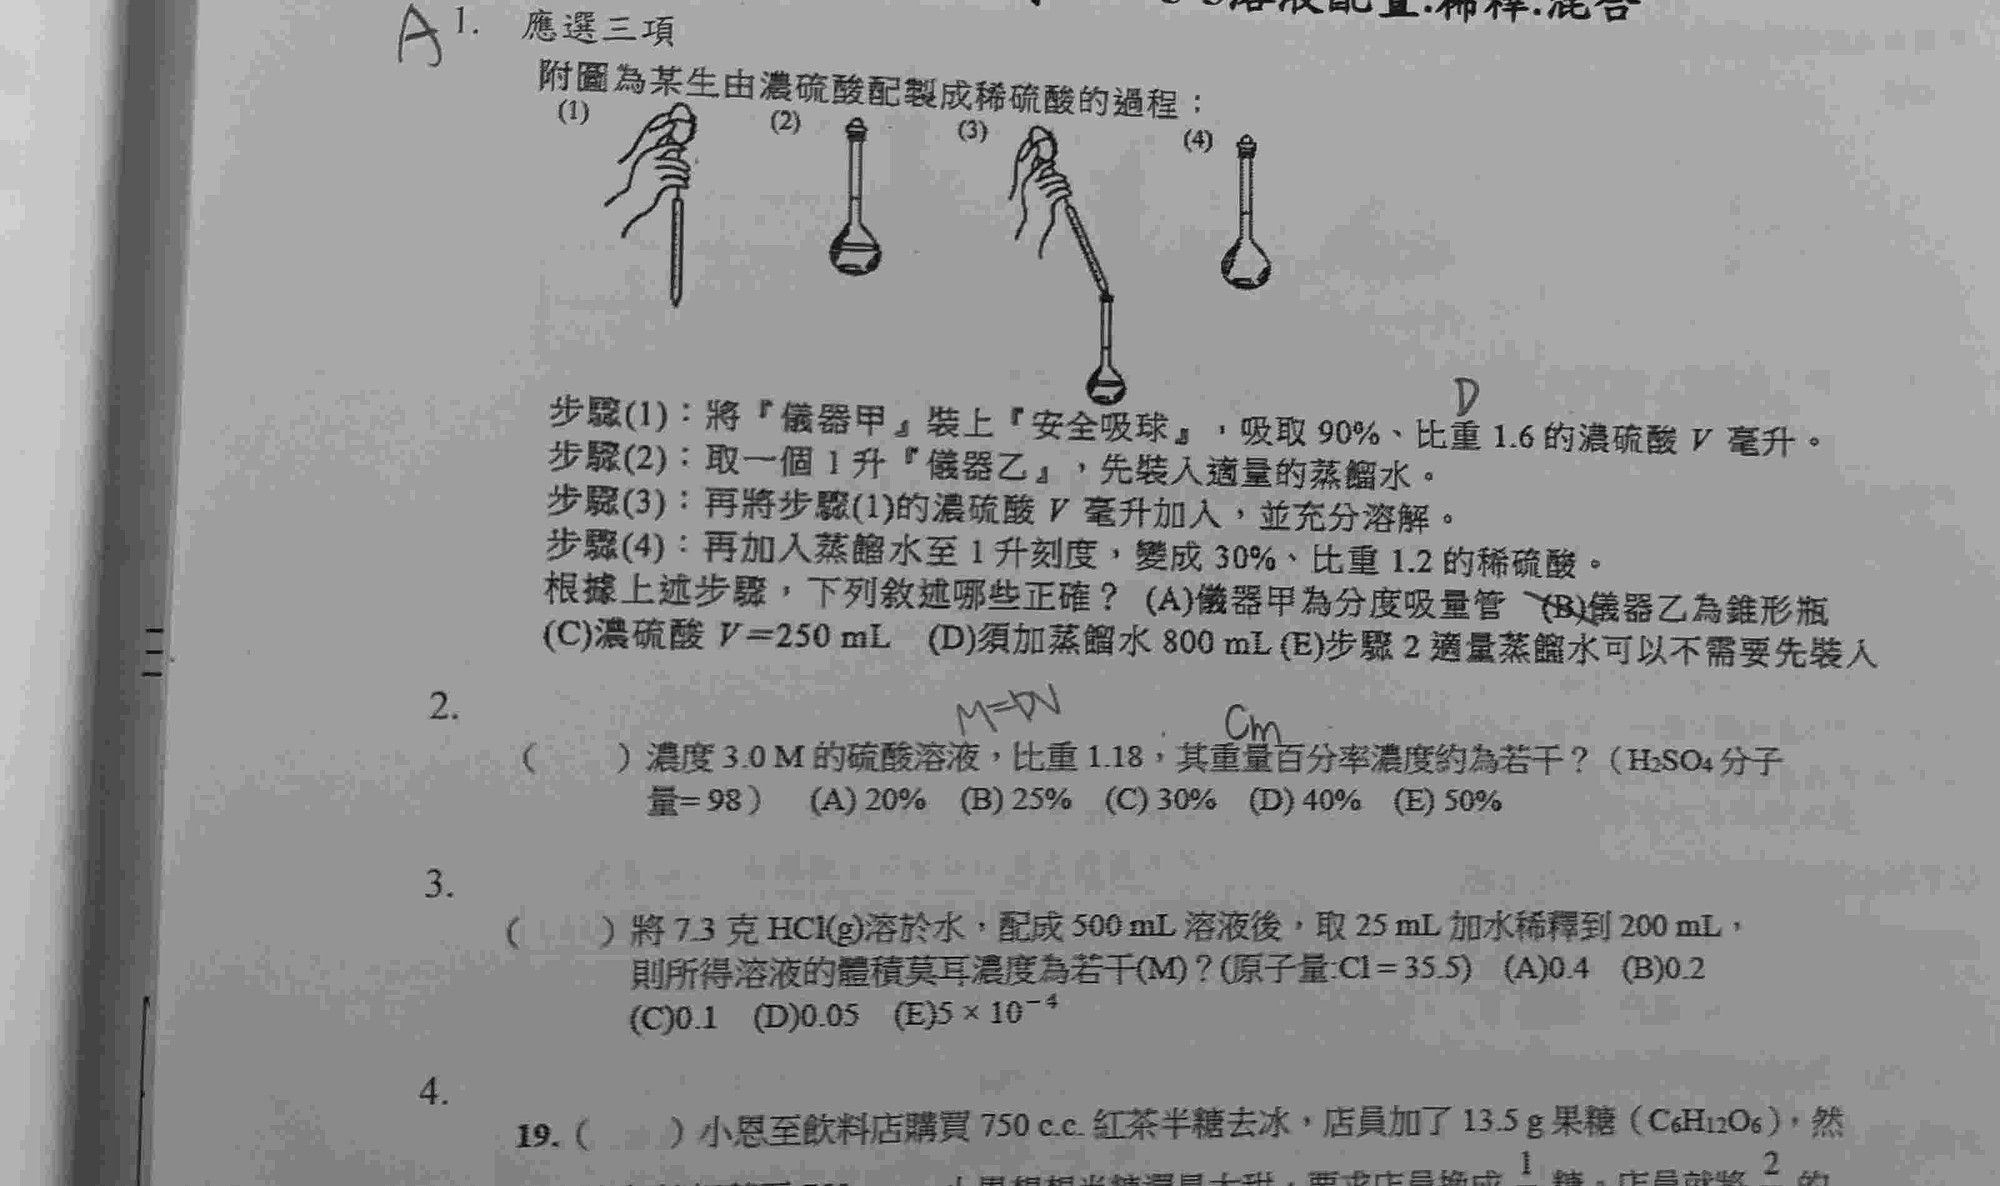 溶液配置.稀釋.混合
A 1. 應選三項
附圖為某生由濃硫酸配製成稀硫酸的過程：
(1) (2) (3) (4)
D
步驟(1)：將『儀器甲』裝上『安全吸球』，吸取 90%、比重 1.6 的濃硫酸 V 毫升。
步驟(2)：取一個 1 升『儀器乙』，先裝入適量的蒸餾水。
步驟(3)：再將步驟(1)的濃硫酸 V 毫升加入，並充分溶解。
步驟(4)：再加入蒸餾水至 1 升刻度，變成 30%、比重 1.2 的稀硫酸。
根據上述步驟，下列敘述哪些正確？ (A)儀器甲為分度吸量管 (B)儀器乙為錐形瓶
(C)濃硫酸 V＝250 mL (D)須加蒸餾水 800 mL (E)步驟 2 適量蒸餾水可以不需要先裝入
2.
M=DV Cm
( ) 濃度 3.0 M 的硫酸溶液，比重 1.18，其重量百分率濃度約為若干？（H₂SO₄ 分子
量= 98） (A) 20% (B) 25% (C) 30% (D) 40% (E) 50%
3.
( ) 將 7.3 克 HCl(g)溶於水，配成 500 mL 溶液後，取 25 mL 加水稀釋到 200 mL，
則所得溶液的體積莫耳濃度為若干(M)？(原子量:Cl = 35.5) (A)0.4 (B)0.2
(C)0.1 (D)0.05 (E)5 × 10⁻⁴
4.
19. ( ) 小恩至飲料店購買 750 c.c. 紅茶半糖去冰，店員加了 13.5 g 果糖（C₆H₁₂O₆），然